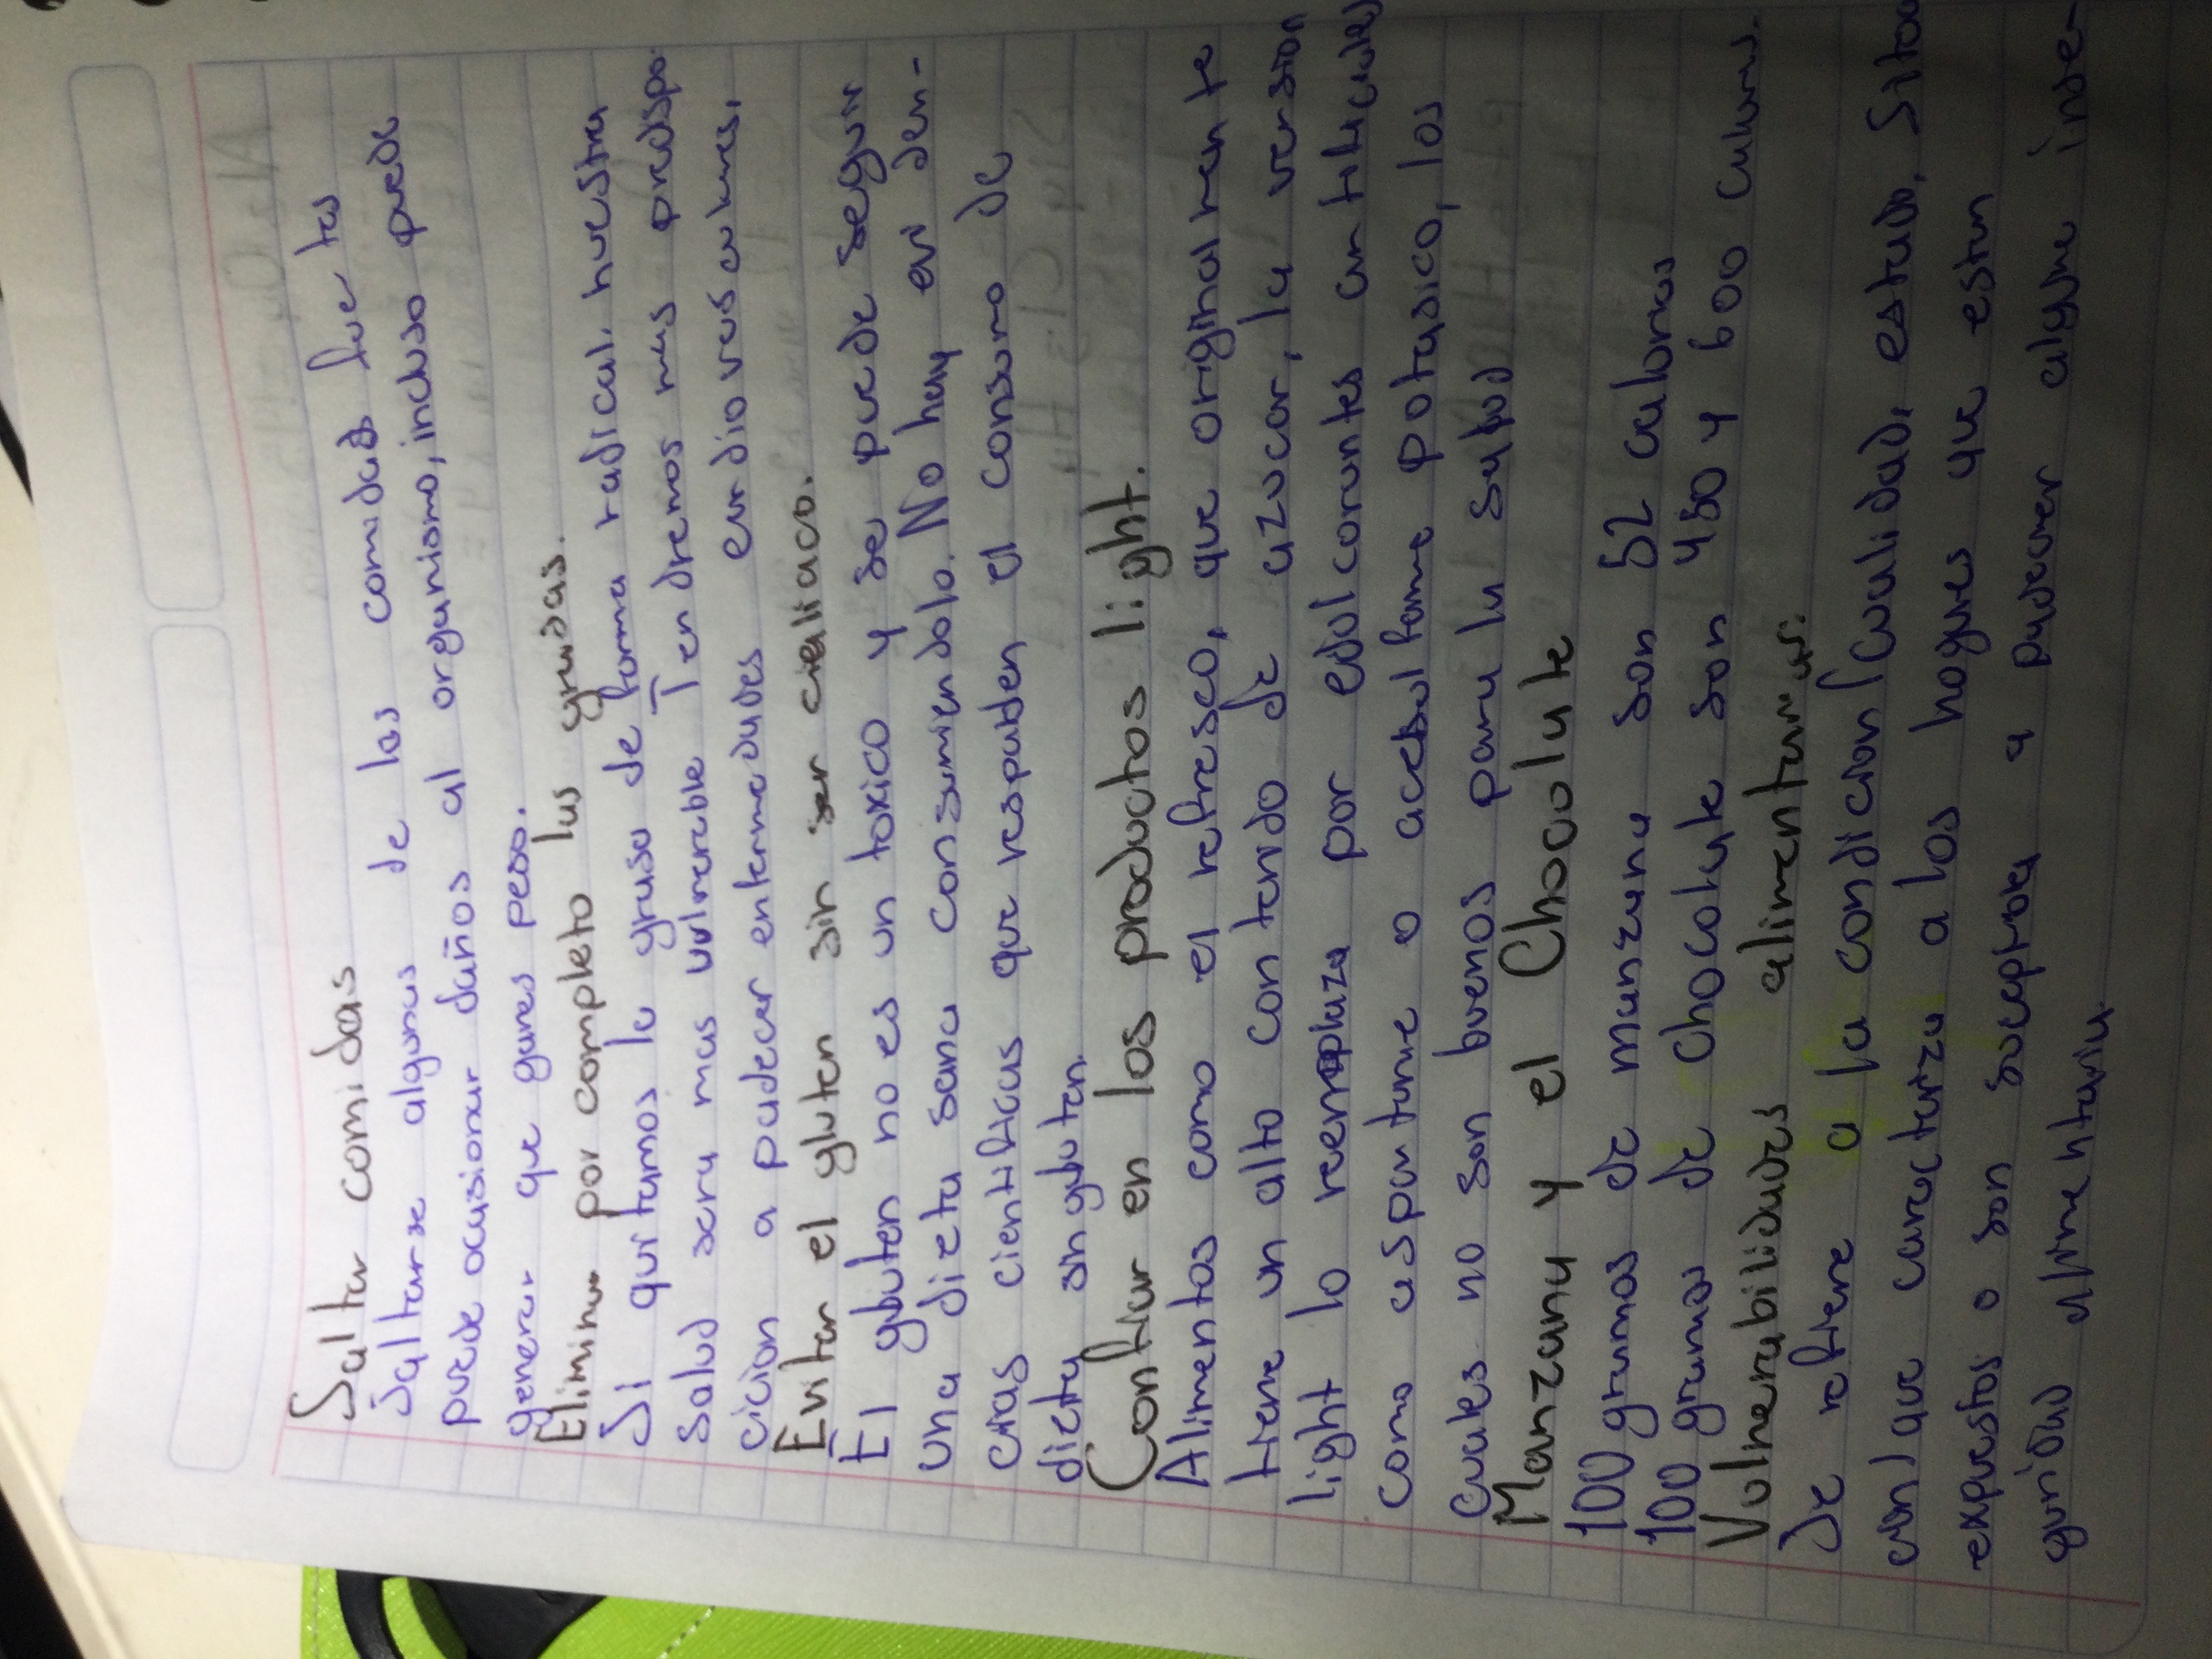 Saltar comidas
Saltarse algunas de las comidas fuertes
puede ocasionar daños al organismo, incluso puede
generar que ganes peso.
Eliminar por completo las grasas.
Si quitamos la grasa de forma radical, nuestra
salud sera mas vulnerable Tendremos mas predispo-
cicion a padecer enfermedades cardiovasculares,
Evitar el gluten sin ser celiaco.
El gluten no es un toxico y se puede seguir
una dieta sana consumiendolo. No hay eviden-
cias cientificas que respalden el consumo de
dieta sin gluten.
Confiar en los productos light.
Alimentos como el refresco, que originalmente
tiene un alto contenido de azucar, la version
light lo reemplaza por edulcorantes artificiales
como aspartame o acesulfame potasico, los
cuales no son buenos para la salud
Manzana y el Chocolate
100 gramos de manzana son 52 calorias
100 gramos de chocolate son 450 y 600 calorias.
Vulnerabilidades alimentarias:
Se refiere a la condicion/cualidad, estado, situa
con/que caracteriza a los hogares que estan
expuestos o son suceptibles a padecer alguna inse-
guridad alimentaria